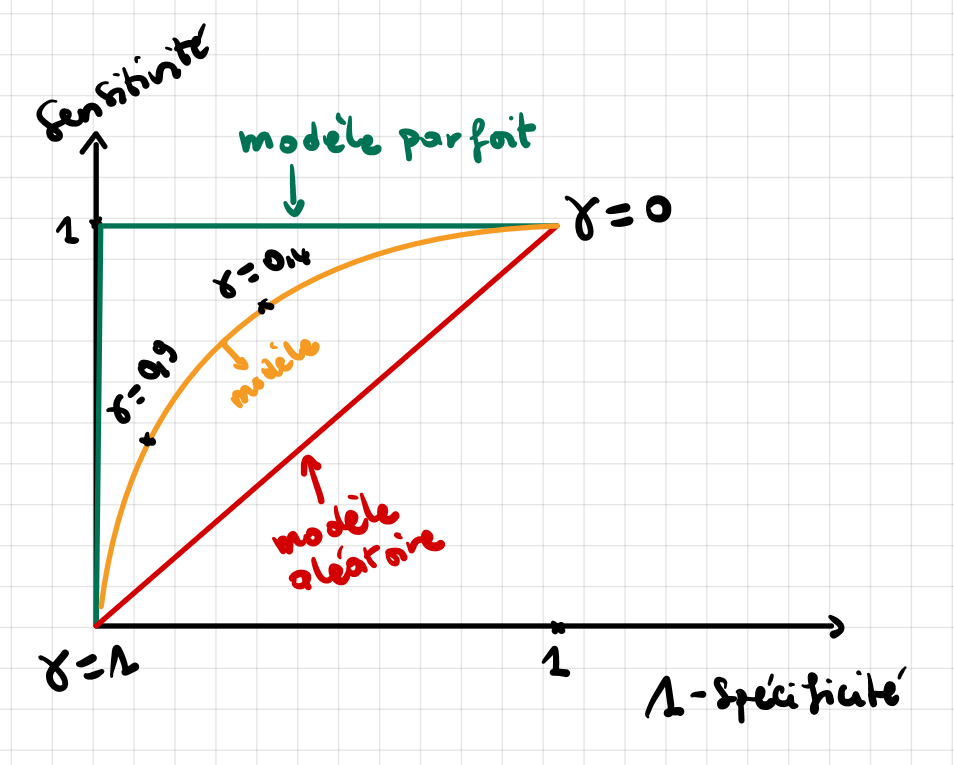 Sensitivité
modèle parfait
1
γ=0
γ=0,4
γ=0,9
modèle
modèle
aléatoire
γ=1
1
1-Spécificité